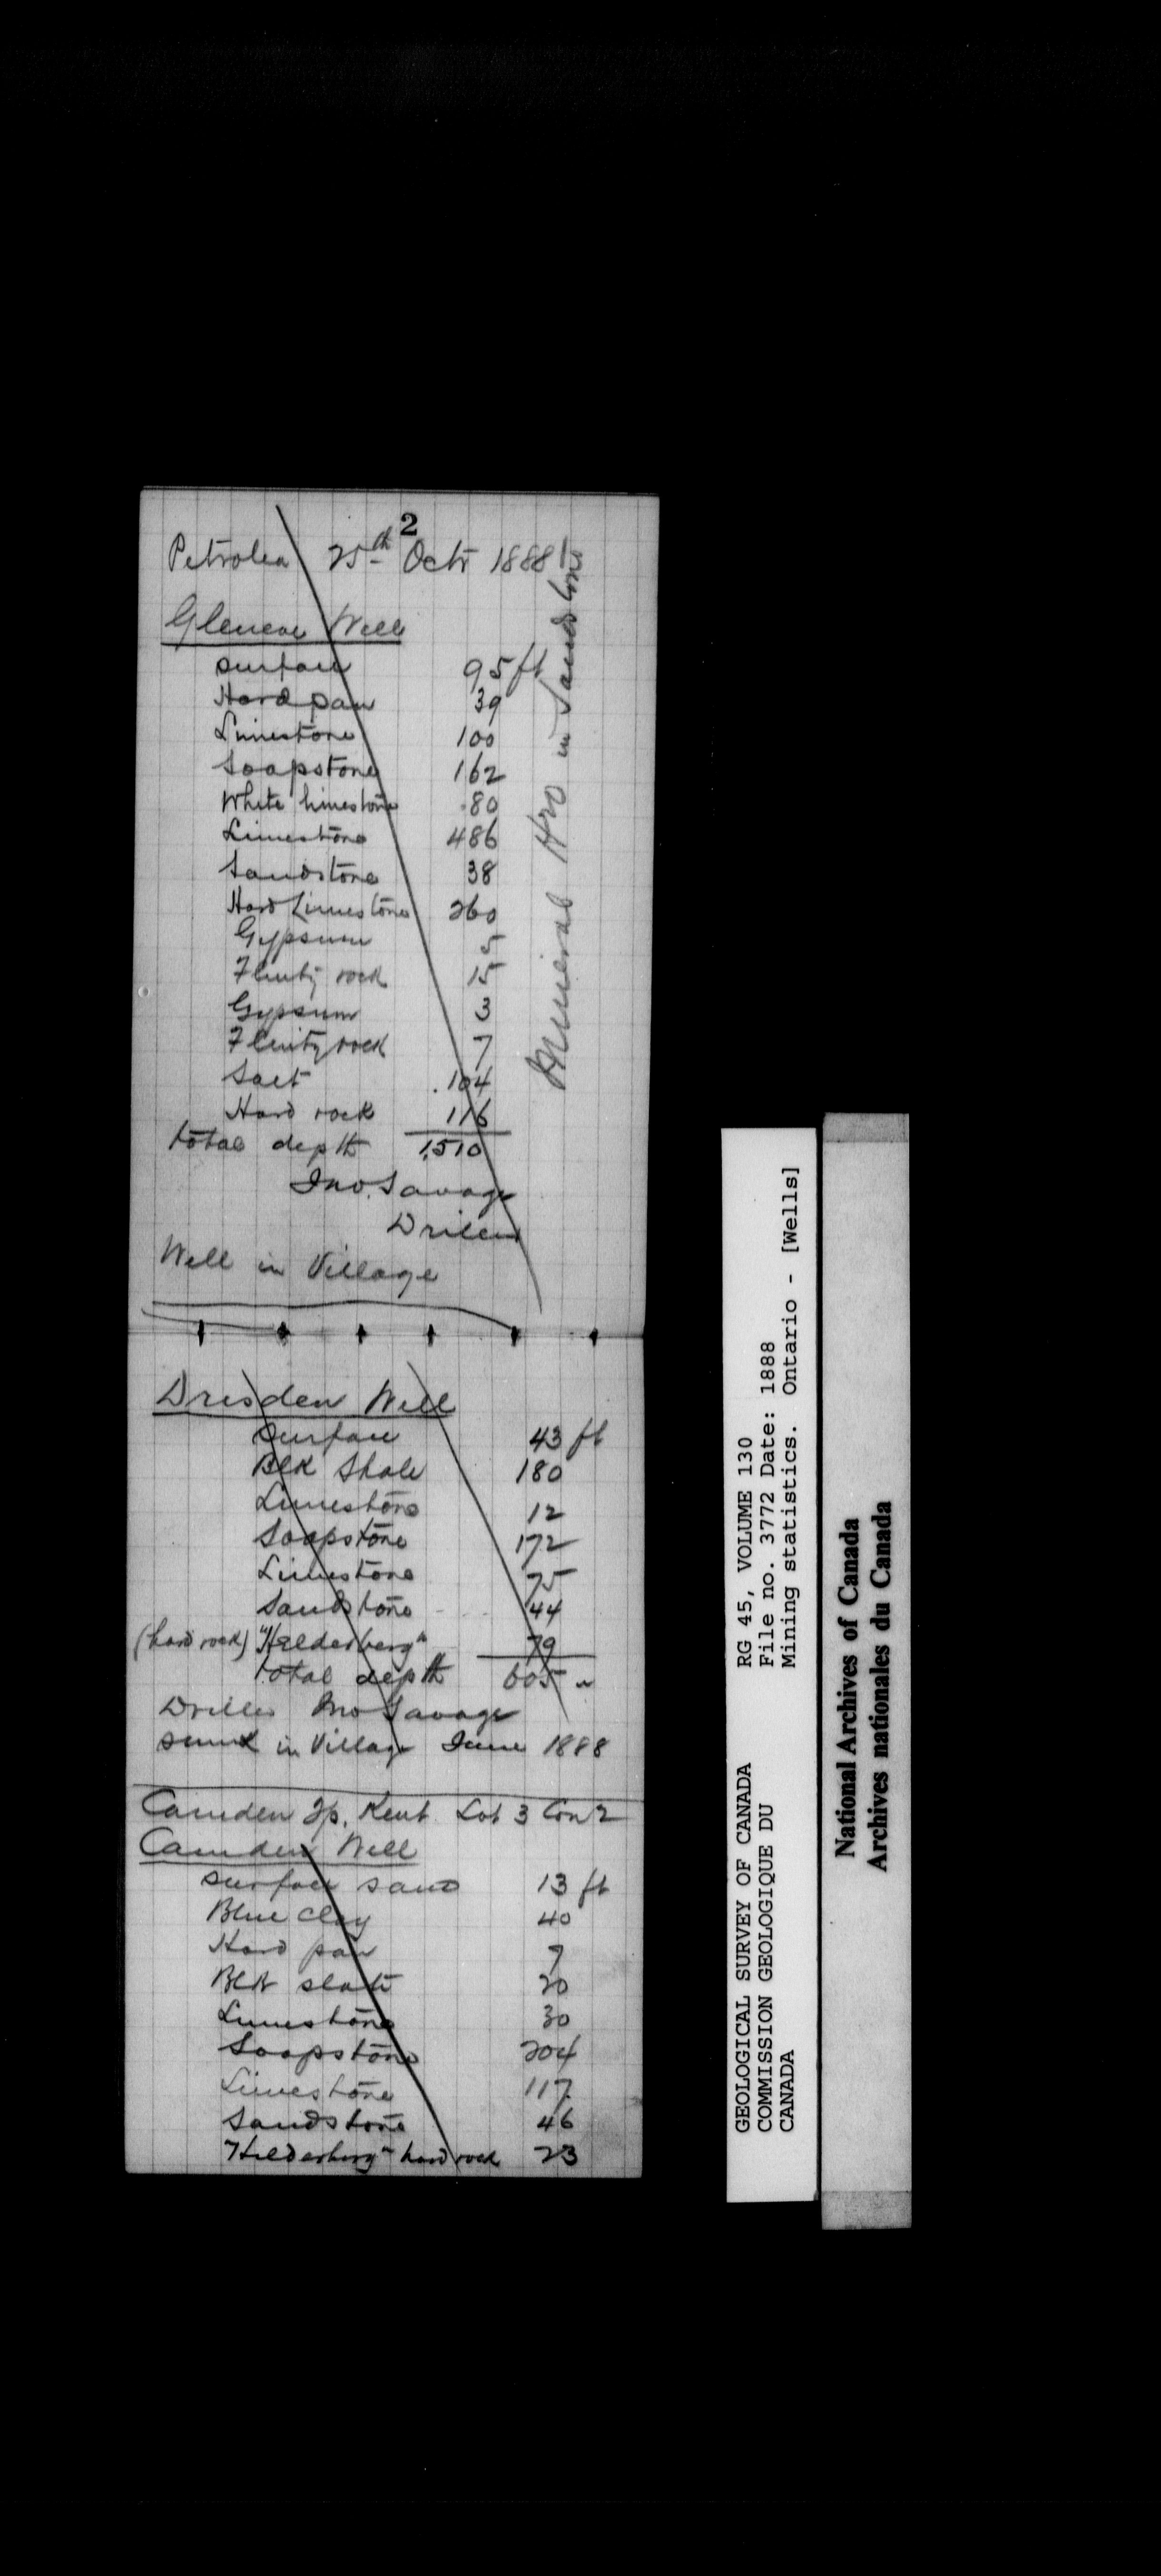 2
Petrolea 25th Octr 1888
Glencoe Well
surface 95 ft
Hard pan 39
Limestone 100
Soapstone 162
White limestone 80
Limestone 486
Sandstone 38
Hard Limestone 260
Gypsum 5
Flinty rock 15
Gypsum 3
Flinty rock 7
Salt 104
Hard rock 116
total depth 1510
Jno. Savage
Driller
Well in Village
Mineral H2O in Sandstone
Dresden Well
surface 43 ft
Blk Shale 180
Limestone 12
Soapstone 172
Limestone 75
Sandstone 44
(hard rock) "Helderberg" 79
total depth 605 "
Driller Jno Savage
sunk in Village June 1888
Camden Tp. Kent Lot 3 Con 2
Camden Well
surface sand 13 ft
Blue clay 40
Hard pan 7
Blk slate 20
Limestone 30
Soapstone 204
Limestone 117
Sandstone 46
"Helderberg" hard rock 23
GEOLOGICAL SURVEY OF CANADA
COMMISSION GEOLOGIQUE DU
CANADA
RG 45, VOLUME 130
File no. 3772 Date: 1888
Mining statistics. Ontario - [Wells]
National Archives of Canada
Archives nationales du Canada